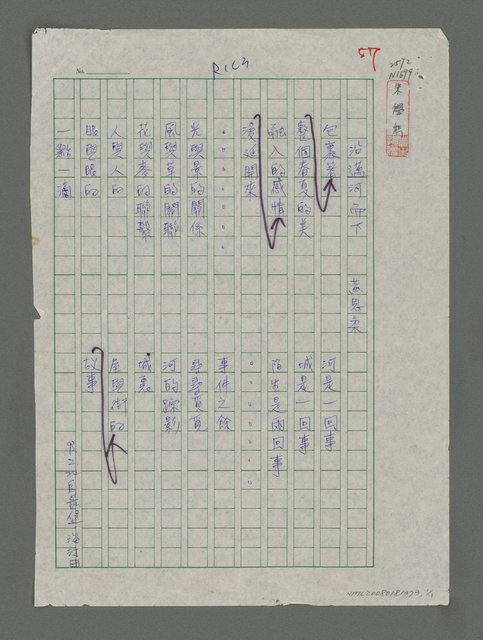 57
No.
朱學恕
沿河而下
黃柔
包裹著
整個春夏的美
融入的感情
漫延開來
。。。。。
光與景的關係
風與草的關聯
花與春的聯繫
人與人的
眼與眼的
一點一滴
河是一回事
城是一回事
陌生是兩回事
。。。。。
事件之餘
尋尋覓覓
河的蹤影
城裏
屋與街的
故事